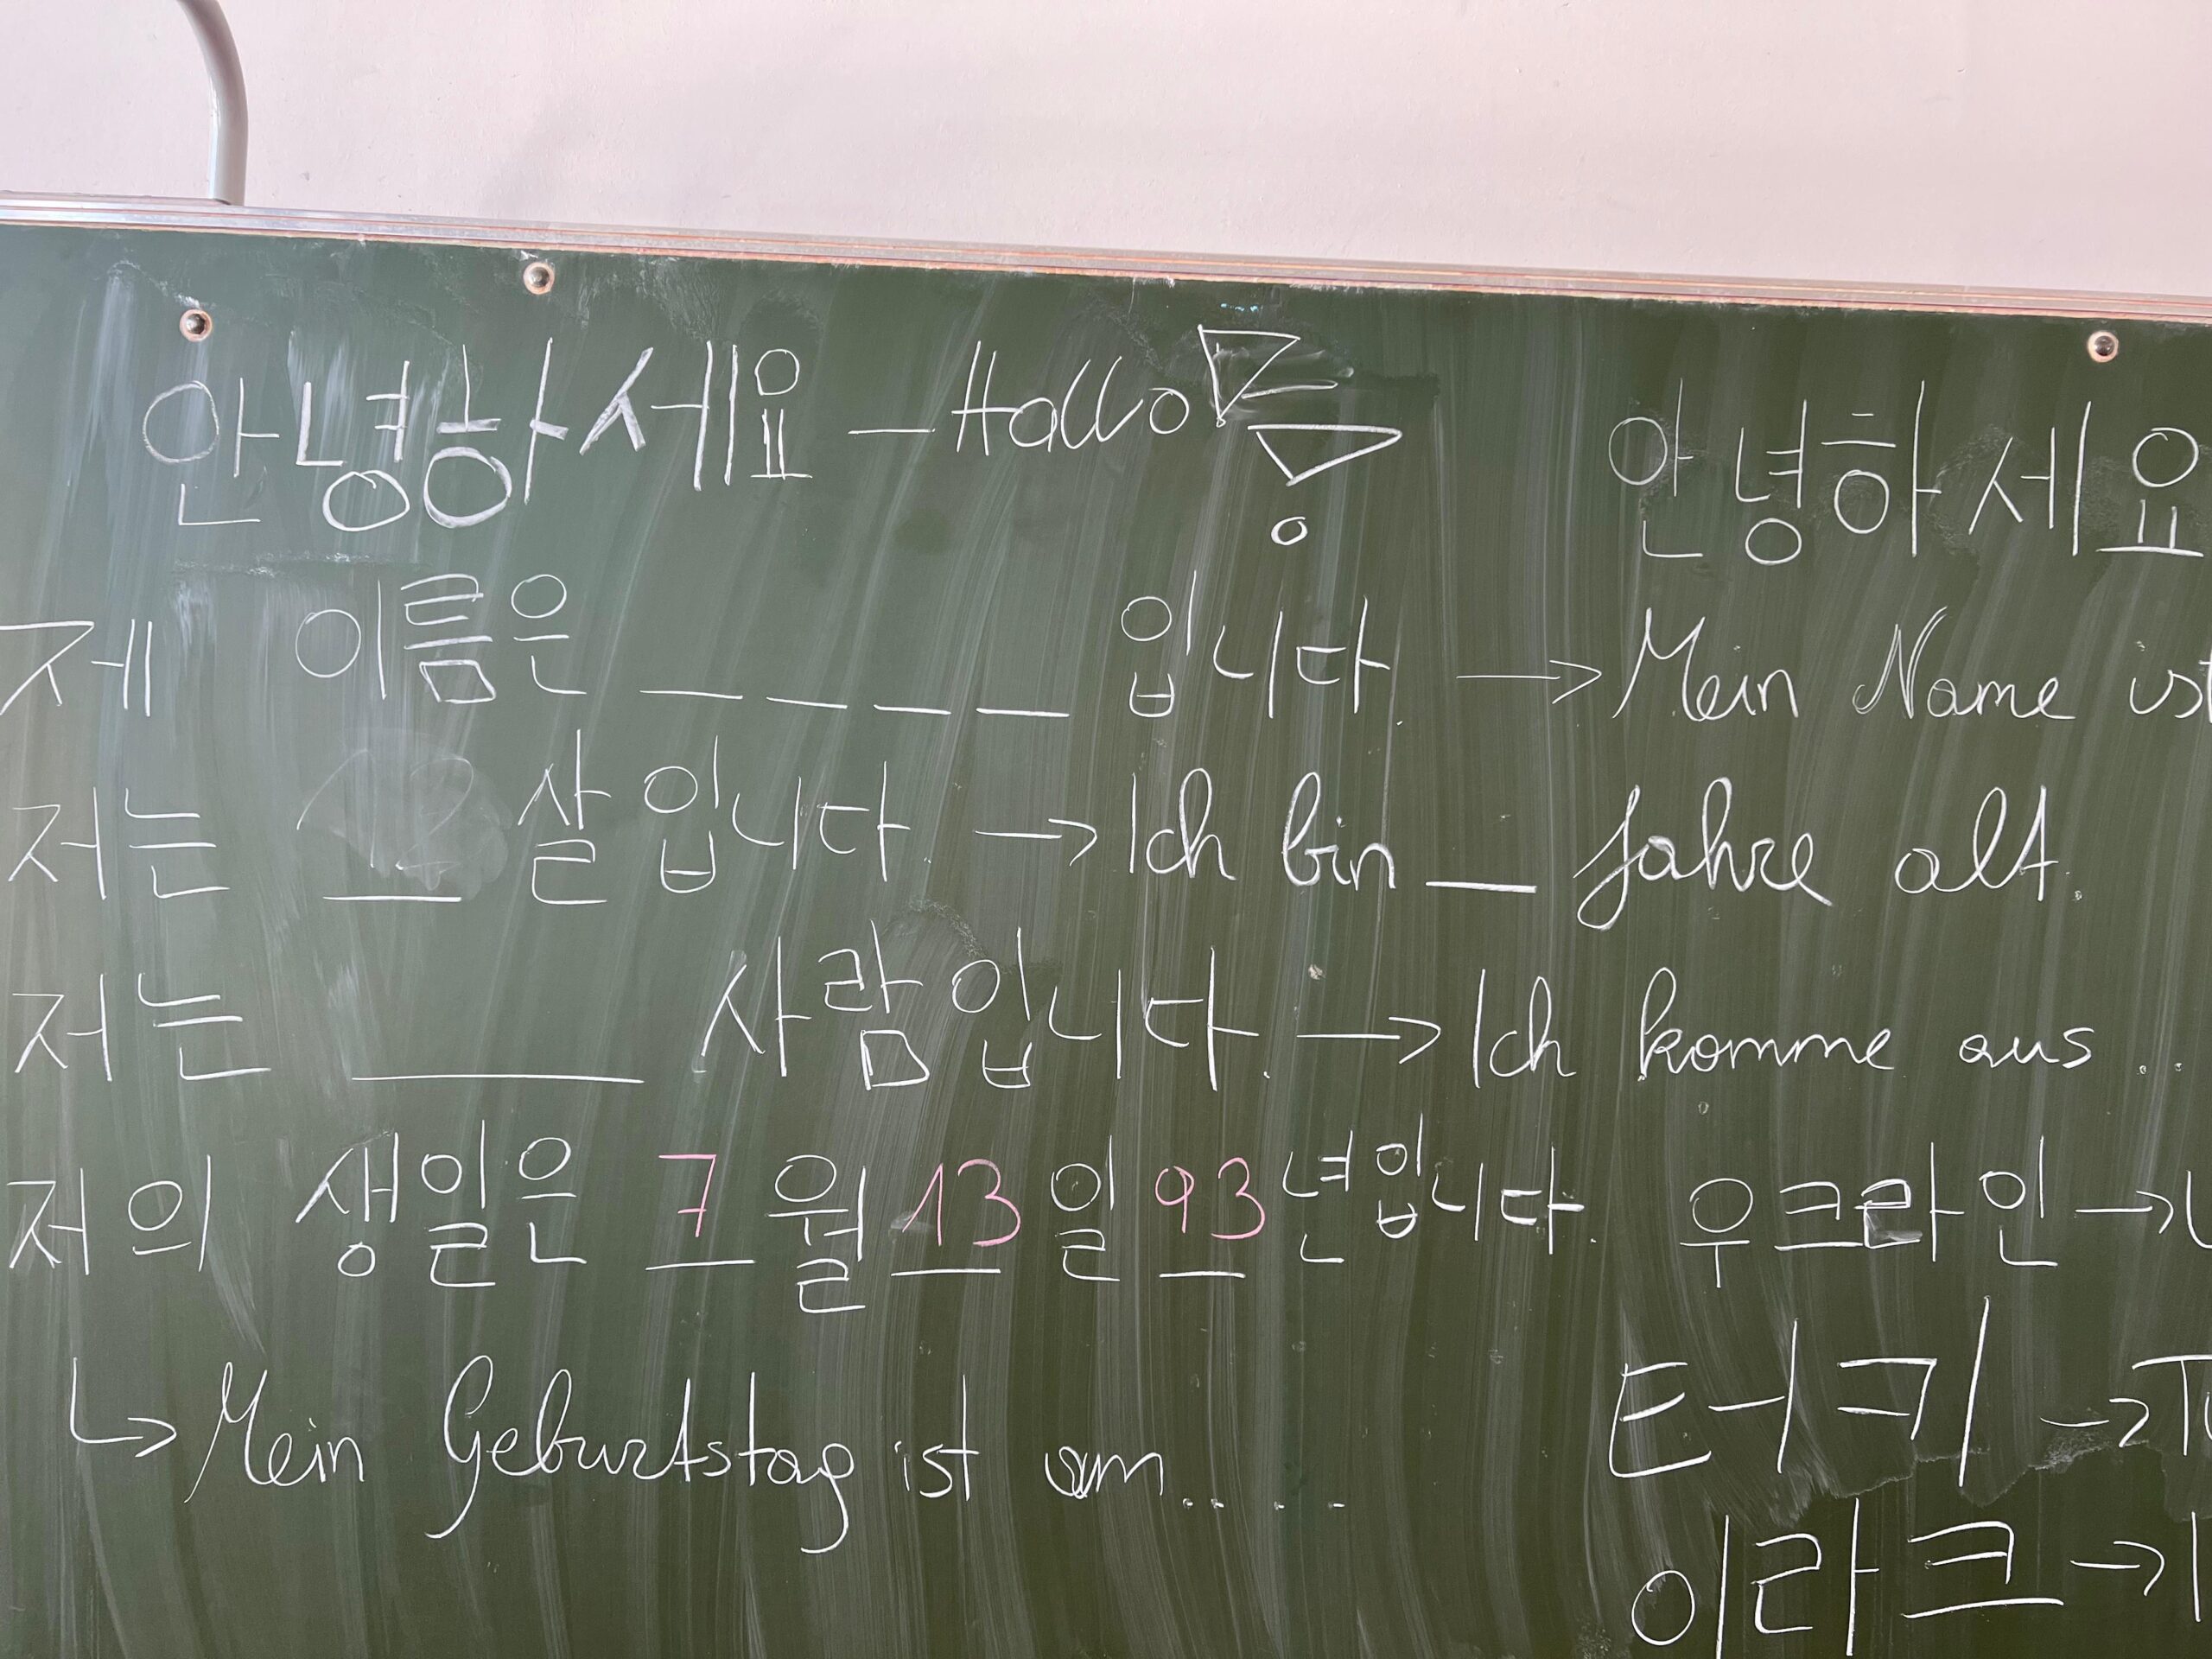 안녕하세요 – Hallo! 안녕하세요
제 이름은 _ _ _ _ 입니다. → Mein Name ist
저는 _ 살입니다. → Ich bin _ Jahre alt.
저는 ____ 사람입니다. → Ich komme aus...
저의 생일은 7 월 13 일 93 년입니다. 우크라인 →
↳ Mein Geburtstag ist am.....
터키 →
이라크 →